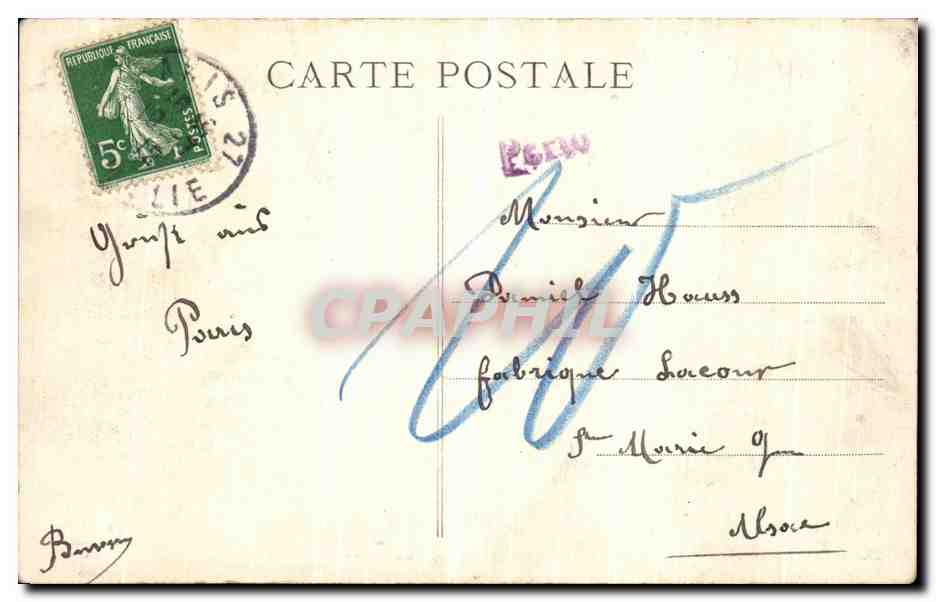 REPUBLIQUE FRANÇAISE
5c
POSTES
CARTE POSTALE
IS 27
Gruß aus
Paris
Monsieur
Daniel Hauss
fabrique Lacour
Ste Marie
Alsace
CPAPHIL